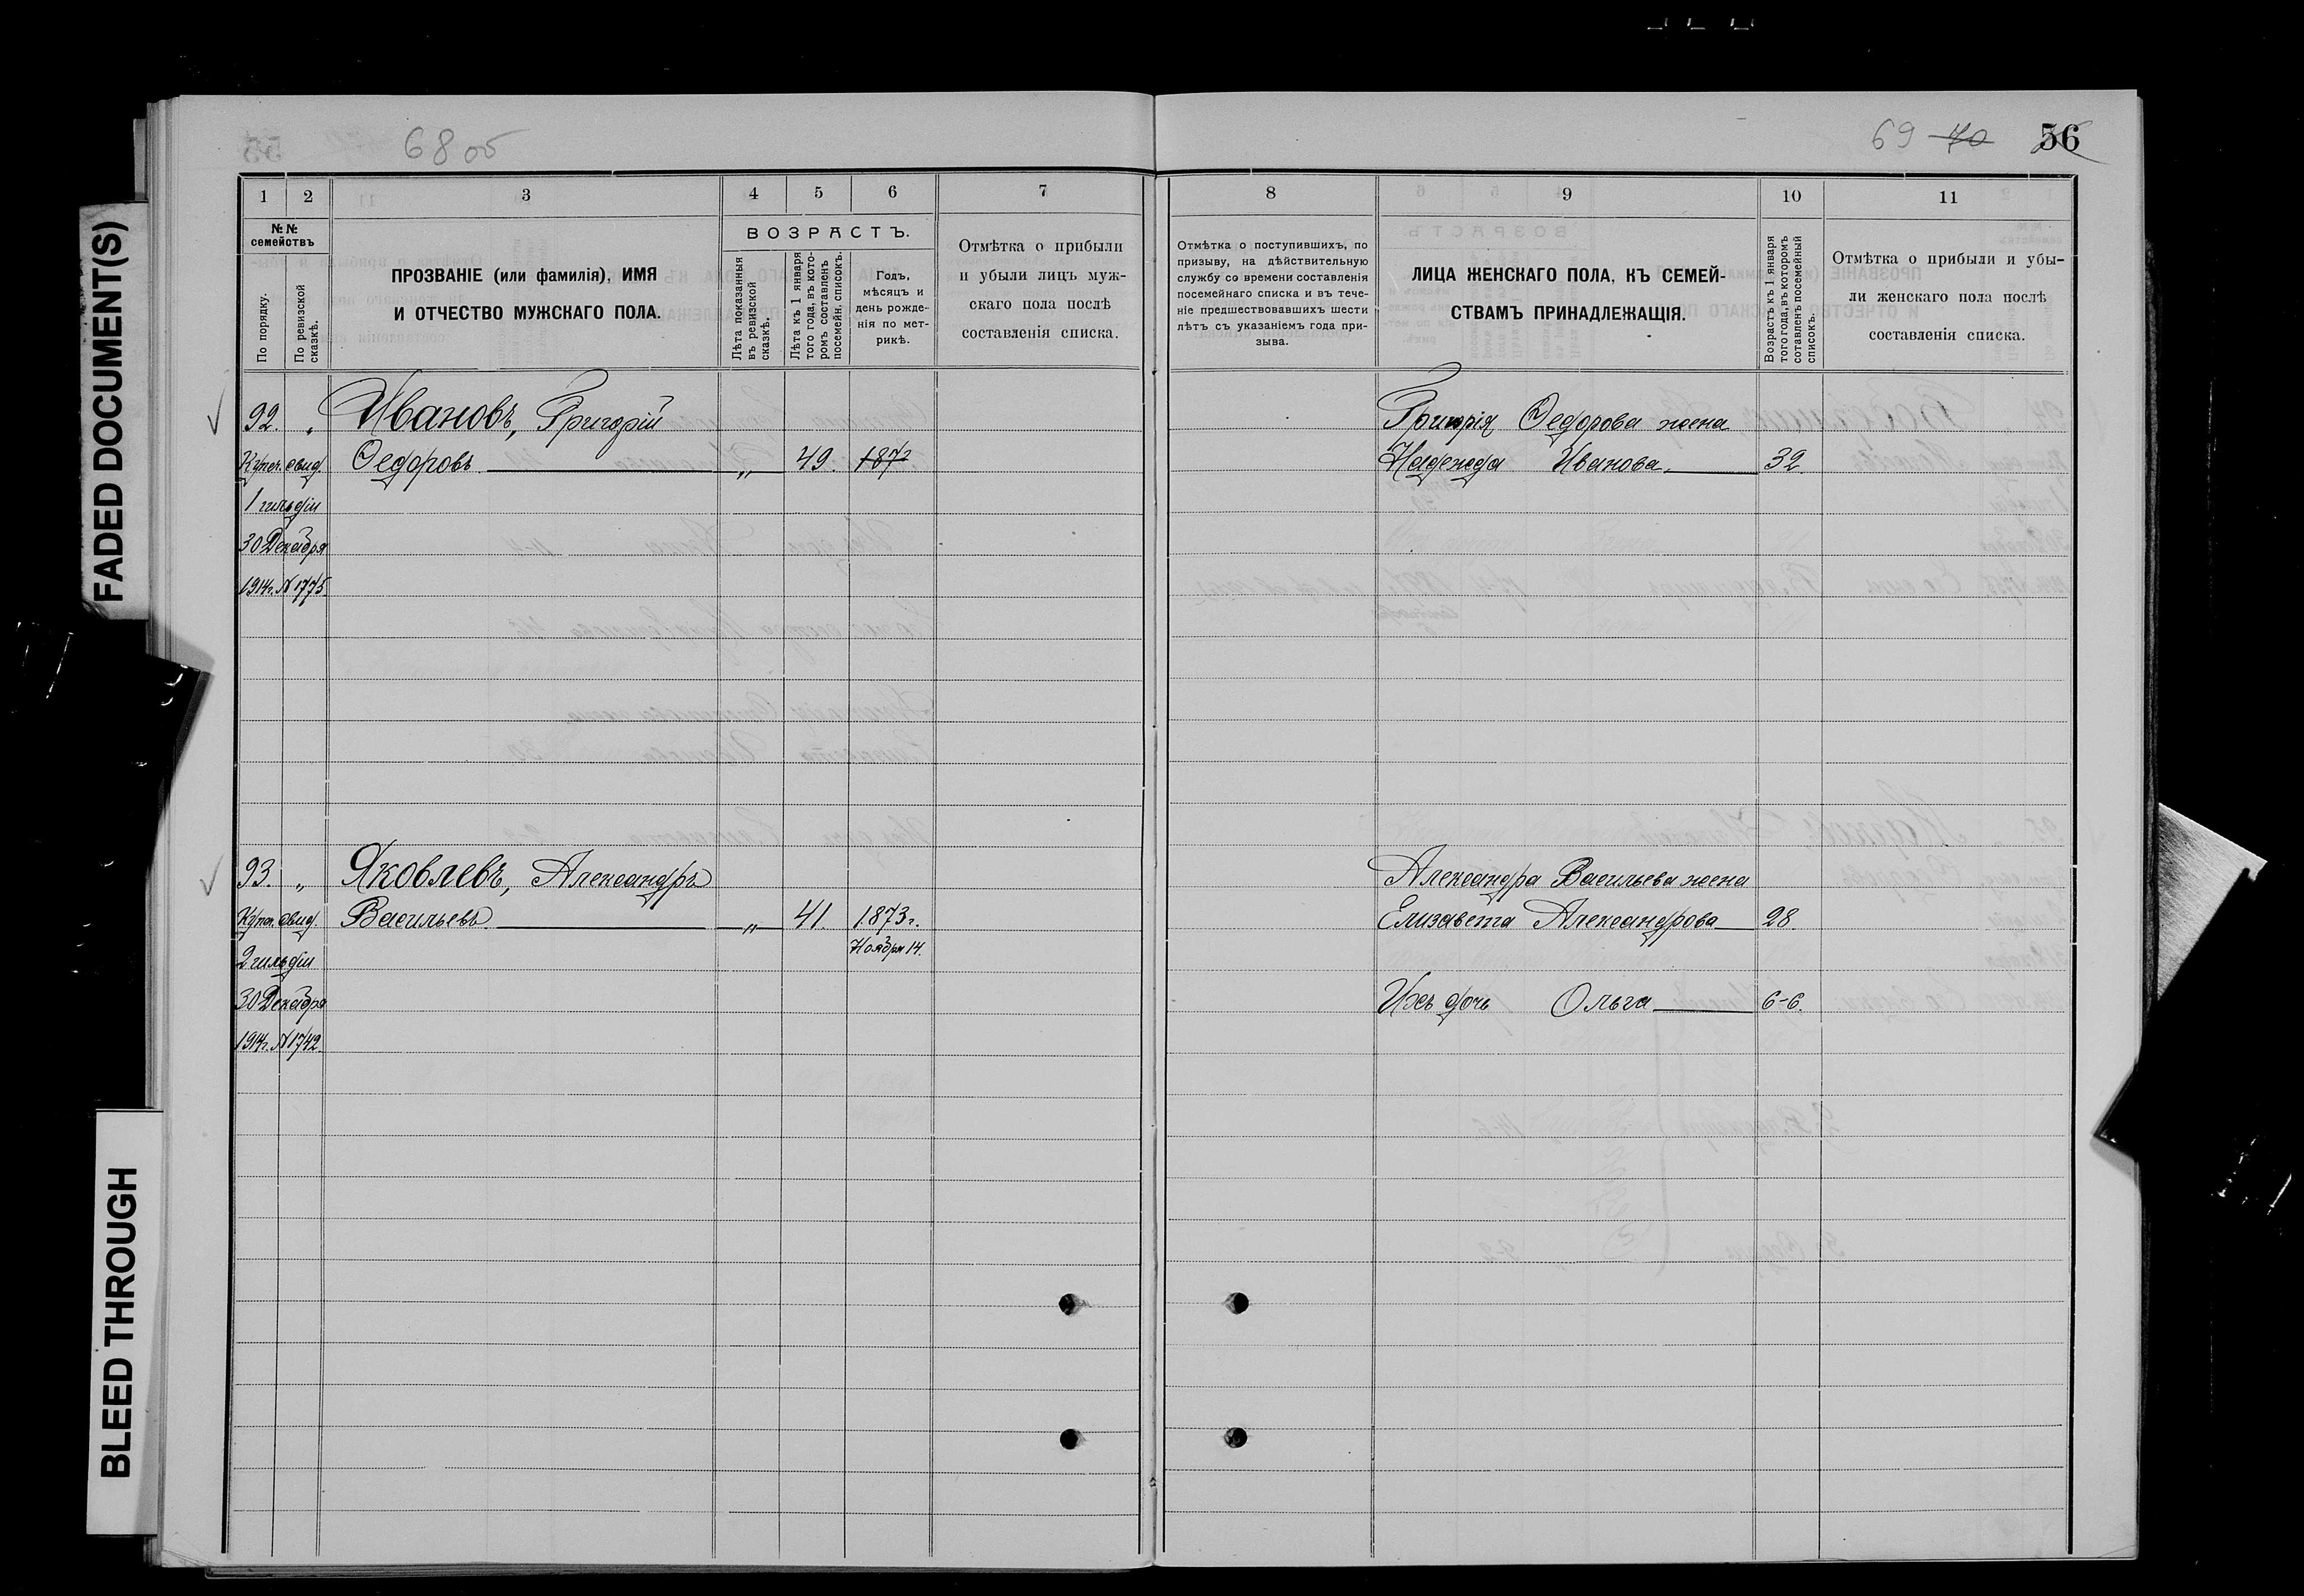 FADED DOCUMENT(S)
BLEED THROUGH
68 об
69 70 56
1 2 3 4 5 6 7
№№ семействъ
По порядку.
По ревизской сказкѣ.
ПРОЗВАНІЕ (или фамилія), ИМЯ
И ОТЧЕСТВО МУЖСКАГО ПОЛА.
ВОЗРАСТЪ.
Лѣта показанныя въ ревизской сказкѣ.
Лѣта къ 1 января того года, въ кото-ромъ составленъ посемейн. списокъ.
Годъ,
мѣсяцъ и
день рожде-
нія по мет-
рикѣ.
Отмѣтка о прибыли
и убыли лицъ муж-
скаго пола послѣ
составленія списка.
92. „ Ивановъ, Григорій
Купеч. свид. Ѳедоровъ „ 49. 187
1 гильдіи
30 Декабря
1914г. № 1775.
93. „ Яковлевъ, Александръ
Купеч. свид. Васильевъ „ 41. 1873г.
Ноября 14.
2 гильдіи
30 Декабря
1914г. № 1742.
8 9 10 11
Отмѣтка о поступившихъ, по
призыву, на дѣйствительную
службу со времени составленія
посемейнаго списка и въ тече-
ніе предшествовавшихъ шести
лѣтъ съ указаніемъ года при-
зыва.
ЛИЦА ЖЕНСКАГО ПОЛА, КЪ СЕМЕЙ-
СТВАМЪ ПРИНАДЛЕЖАЩІЯ.
Возрастъ къ 1 января
того года, въ которомъ
сотавленъ посемейный
списокъ.
Отмѣтка о прибыли и убы-
ли женскаго пола послѣ
составленія списка.
Григорія Ѳедорова жена
Надежда Иванова 32.
Александра Васильева жена
Елизавета Александрова 28.
Ихъ дочь Ольга 6-6.